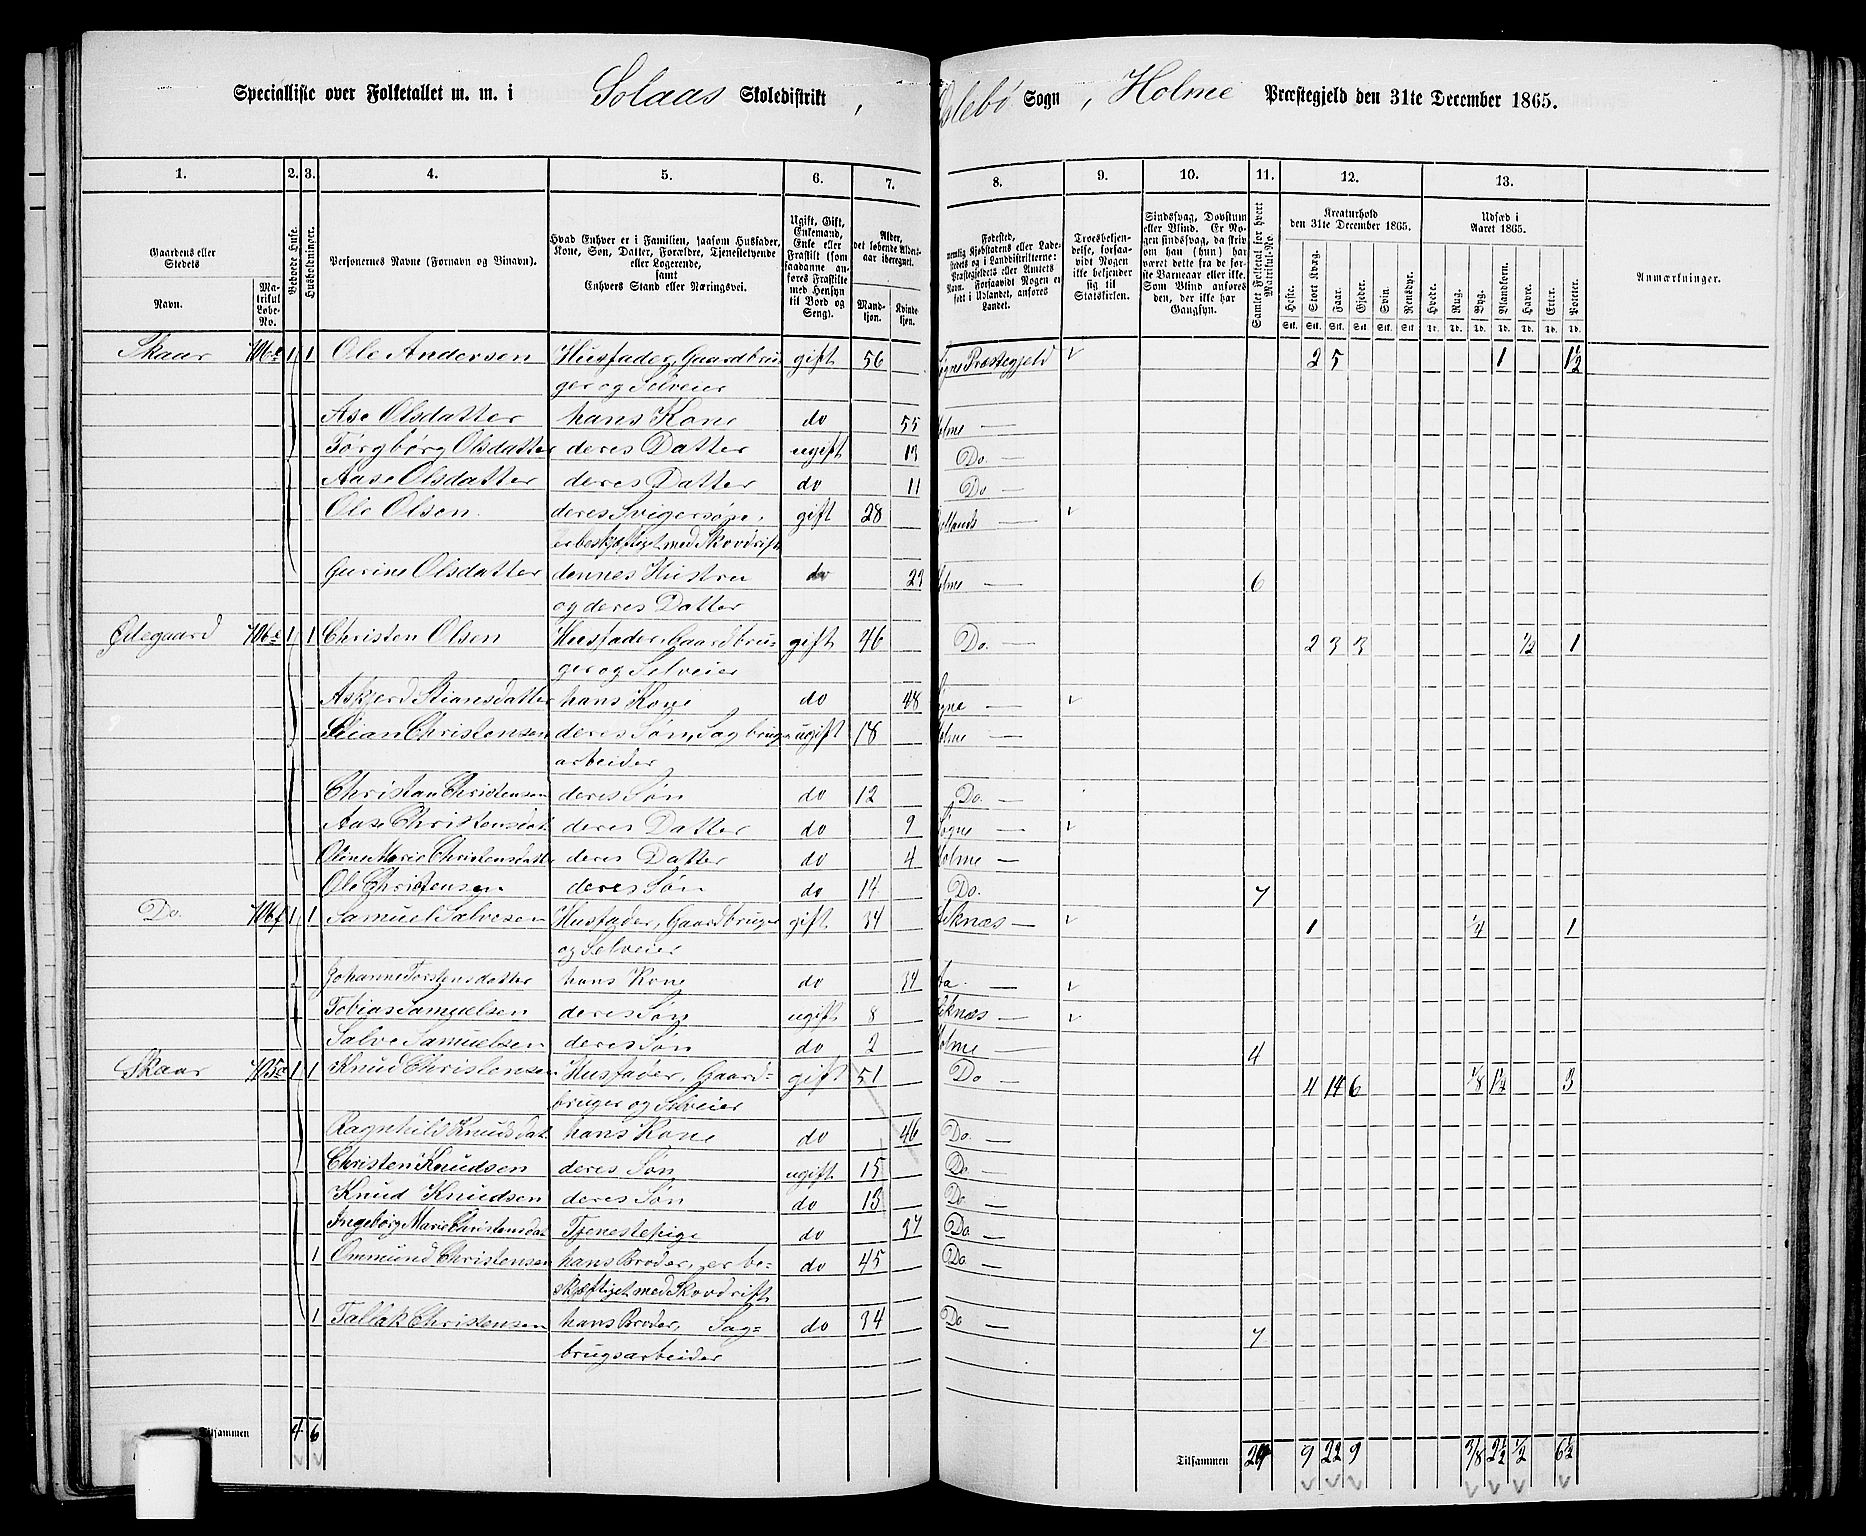 Specialliste over Folketallet m. m. i Solaas Skoledistrikt, Øslebö Sogn, Holme Præstegjeld den 31te December 1865.
1. 2. 3. 4. 5. 6. 7. 8. 9. 10. 11. 12. 13.
Gaardens eller Stedets
Navn.
Matrikul Løbe-No.
Beboede Huse.
Husholdninger.
Personernes Navne (Fornavn og Binavn).
Hvad Enhver er i Familien, saasom Husfader, Kone, Søn, Datter, Forældre, Tjenestetyende eller Logerende, samt Enhvers Stand eller Næringsvei.
Ugift, Gift, Enkemand, Enke eller Fraskilt (som saadanne anføres Fraskilte med Hensyn til Bord og Seng).
Alder, det løbende Aldersaar iberegnet.
Mandkjøn. Kvindekjøn.
Fødested, nemlig Kjøbstadens eller Ladestedets og i Landdistrikterne: Præstegjeldets eller Amtets Navn. Forsaavidt Nogen er født i Udlandet, anføres Landet.
Troesbekjendelse, forsaavidt Nogen ikke bekjender sig til Statskirken.
Sindssvag, Døvstum eller Blind. Er Nogen sindssvag, da skrives om han (hun) har været dette fra de første Barneaar eller ikke. Som Blind anføres den, der ikke har Gangsyn.
Samlet Folketal for hvert Matrikul-No.
Kreaturhold den 31te December 1865.
Heste. Stort Kvæg. Faar. Gjeder. Svin. Rensdyr.
Udsæd i Aaret 1865.
Hvede. Rug. Byg. Blandkorn. Havre. Erter. Poteter.
Anmærkninger.
Skaar 106 1 1 Ole Andersen Husfader, Gaardbru- gift 56 Søgne Præstegjeld v 2 5 1 1½
ger og Selveier
Ase Olsdatter hans Kone do 55 Holme —
Torgbørg Olsdatter deres Datter ugift 13 Do. —
Aase Olsdatter deres Datter do 11 Do —
Ole Olsen deres Svigersøn, gift 28 — v
er beskjeftiget med Skovdrift
Gurine Olsdatter dennes Hustru do 29 Holme — 6
og deres Datter
Ødegaard 106e 1 1 Christen Olsen Husfader, Gaardbru- gift 46 Do. — 2 3 3 ½ 1
ger og Selveier
Askjerd Stiansdatter hans Kone do 48 Søgne — v
Stian Christensen deres Søn, Sagbrugs- ugift 18 Holme —
arbeider
Christan Christensen deres Søn do 12 Do. —
Aase Christensdat. deres Datter do 9 Søgne — v
Oline Marie Christensdatter deres Datter do 4 Holme —
Ole Christensen deres Søn do 14 Do. 7
Do. 106f 1 1 Samuel Salvesen Husfader, Gaardbruger gift 34 — v 1 ¼ 1
og Selveier
Johanne Torstensdatter hans Kone do 34 Aa. — v
Tobias Samuelsen deres Søn ugift 8 — v
Salve Samuelsen deres Søn do 2 Holme — 4
Skaar 105a 1 1 Knud Christensen Husfader, Gaard- gift 51 Do — 4 14 6 ⅛ 1½ 3
bruger og Selveier
Ragnhild Knudsdat. hans Kone do 46 Do. —
Christen Knudsen deres Søn ugift 15 Do. —
Knud Knudsen deres Søn do 13 Do. —
Ingeborg Marie Christensdat. Tjenestepige do 37 Do. —
1 Ommund Christensen hans Broder, er be- do 45 Do.
skjeftiget med Skovdrift
1 Tallak Christensen hans Broder, Sag- do 34 Do — 7
brugsarbeider
Tilsammen 4 6 Tilsammen 24 9 22 9 ⅜ 2½ ½ 6½